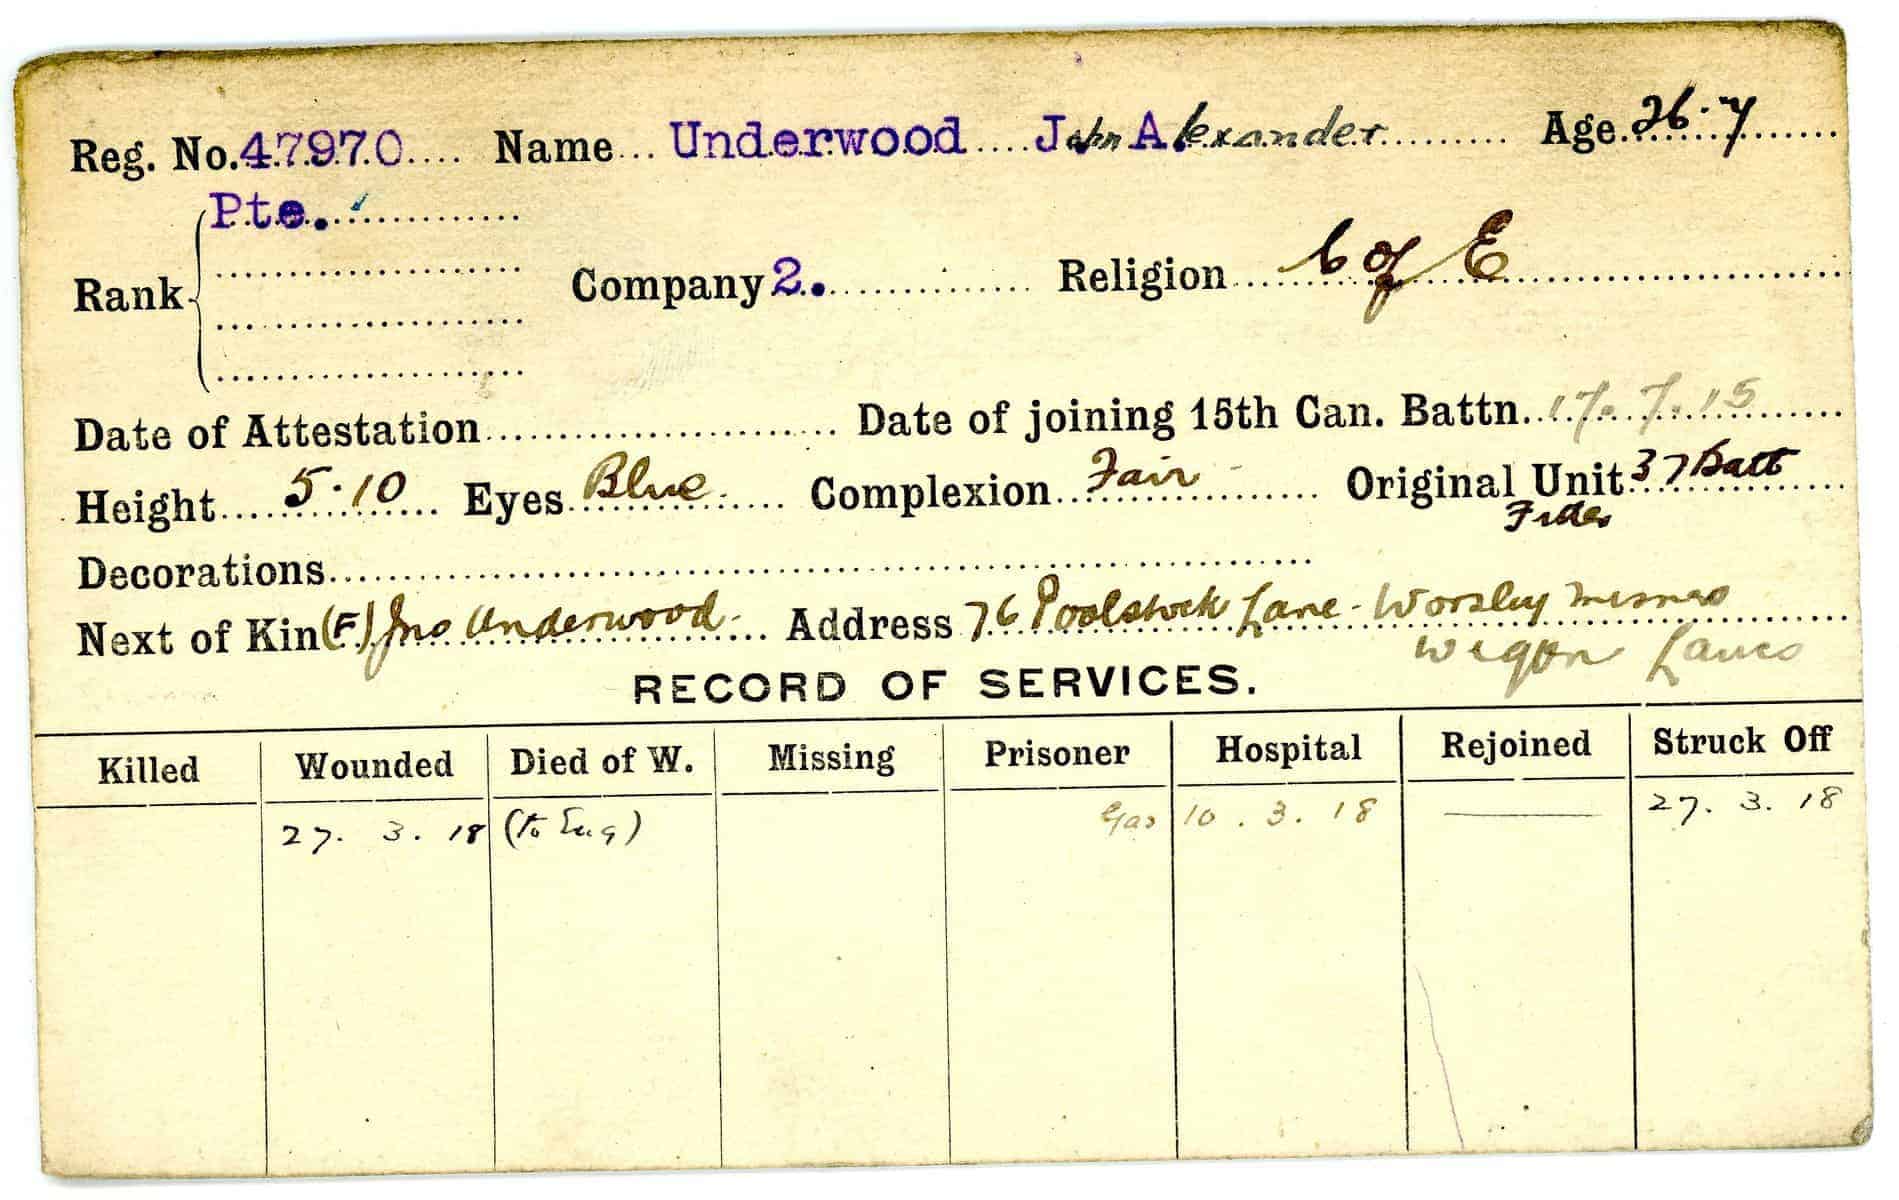 Reg. No. 47970 Name Underwood John Alexander Age 26.7
Pte.
Rank Company 2. Religion C of E
Date of Attestation Date of joining 15th Can. Battn. 17.7.15
Height 5.10 Eyes Blue Complexion Fair Original Unit 37 Batt
Decorations
Next of Kin (F) Jno Underwood Address 76 Poolstock Lane - Worsley Mesnes
Wigan Lancs
RECORD OF SERVICES.
Killed Wounded Died of W. Missing Prisoner Hospital Rejoined Struck Off
27. 3. 18 (to Eng) Gas 10. 3. 18 27. 3. 18